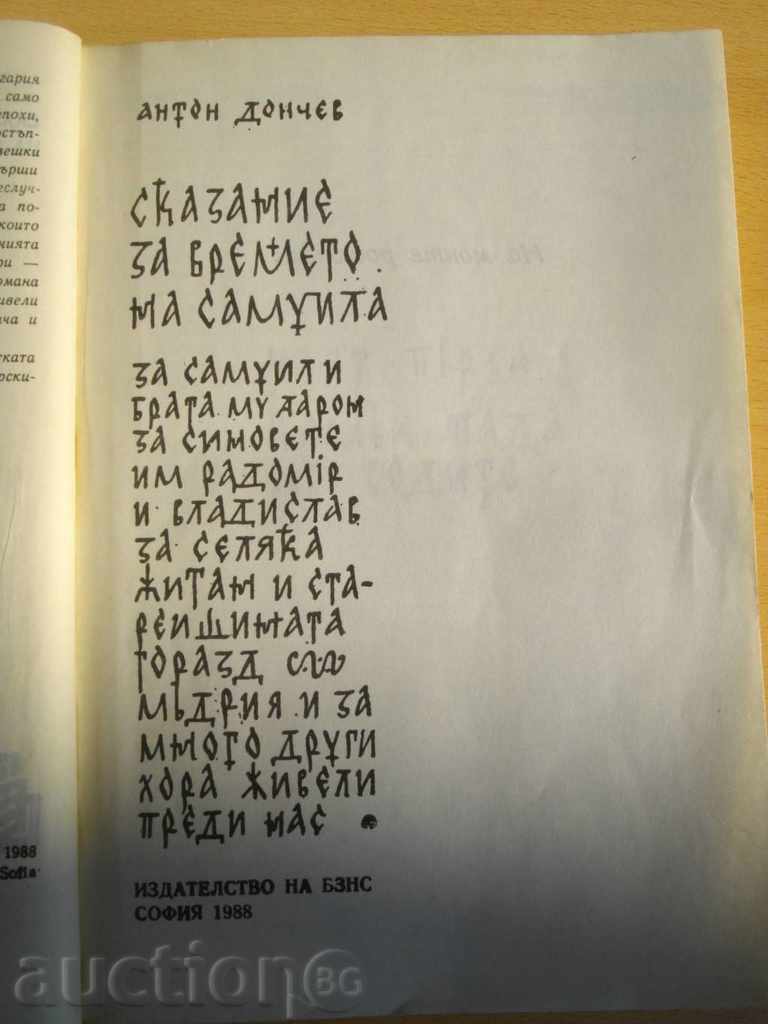 гария
само
епохи,
остъп-
вешки
ърши
еслуч-
а по-
които
нията
ри —
омана
ивели
ача и
ката
рски-
1988
Sofia
АНТОН ДОНЧЕВ
СКАЗАНИЕ
ЗА ВРЕМЕТО
НА САМУИЛА
ЗА САМУИЛ И
БРАТА МУ ААРОН
ЗА СИНОВЕТЕ
ИМ РАДОМІР
И ВЛАДИСЛАВ
ЗА СЕЛЯКА
ЖИТАН И СТА-
РЕИШИНАТА
ГОРАЗД
МЪДРИЯ И ЗА
МНОГО ДРУГИ
ХОРА ЖИВЕЛИ
ПРЕДИ НАС
ИЗДАТЕЛСТВО НА БЗНС
СОФИЯ 1988
На моите
auctionBG